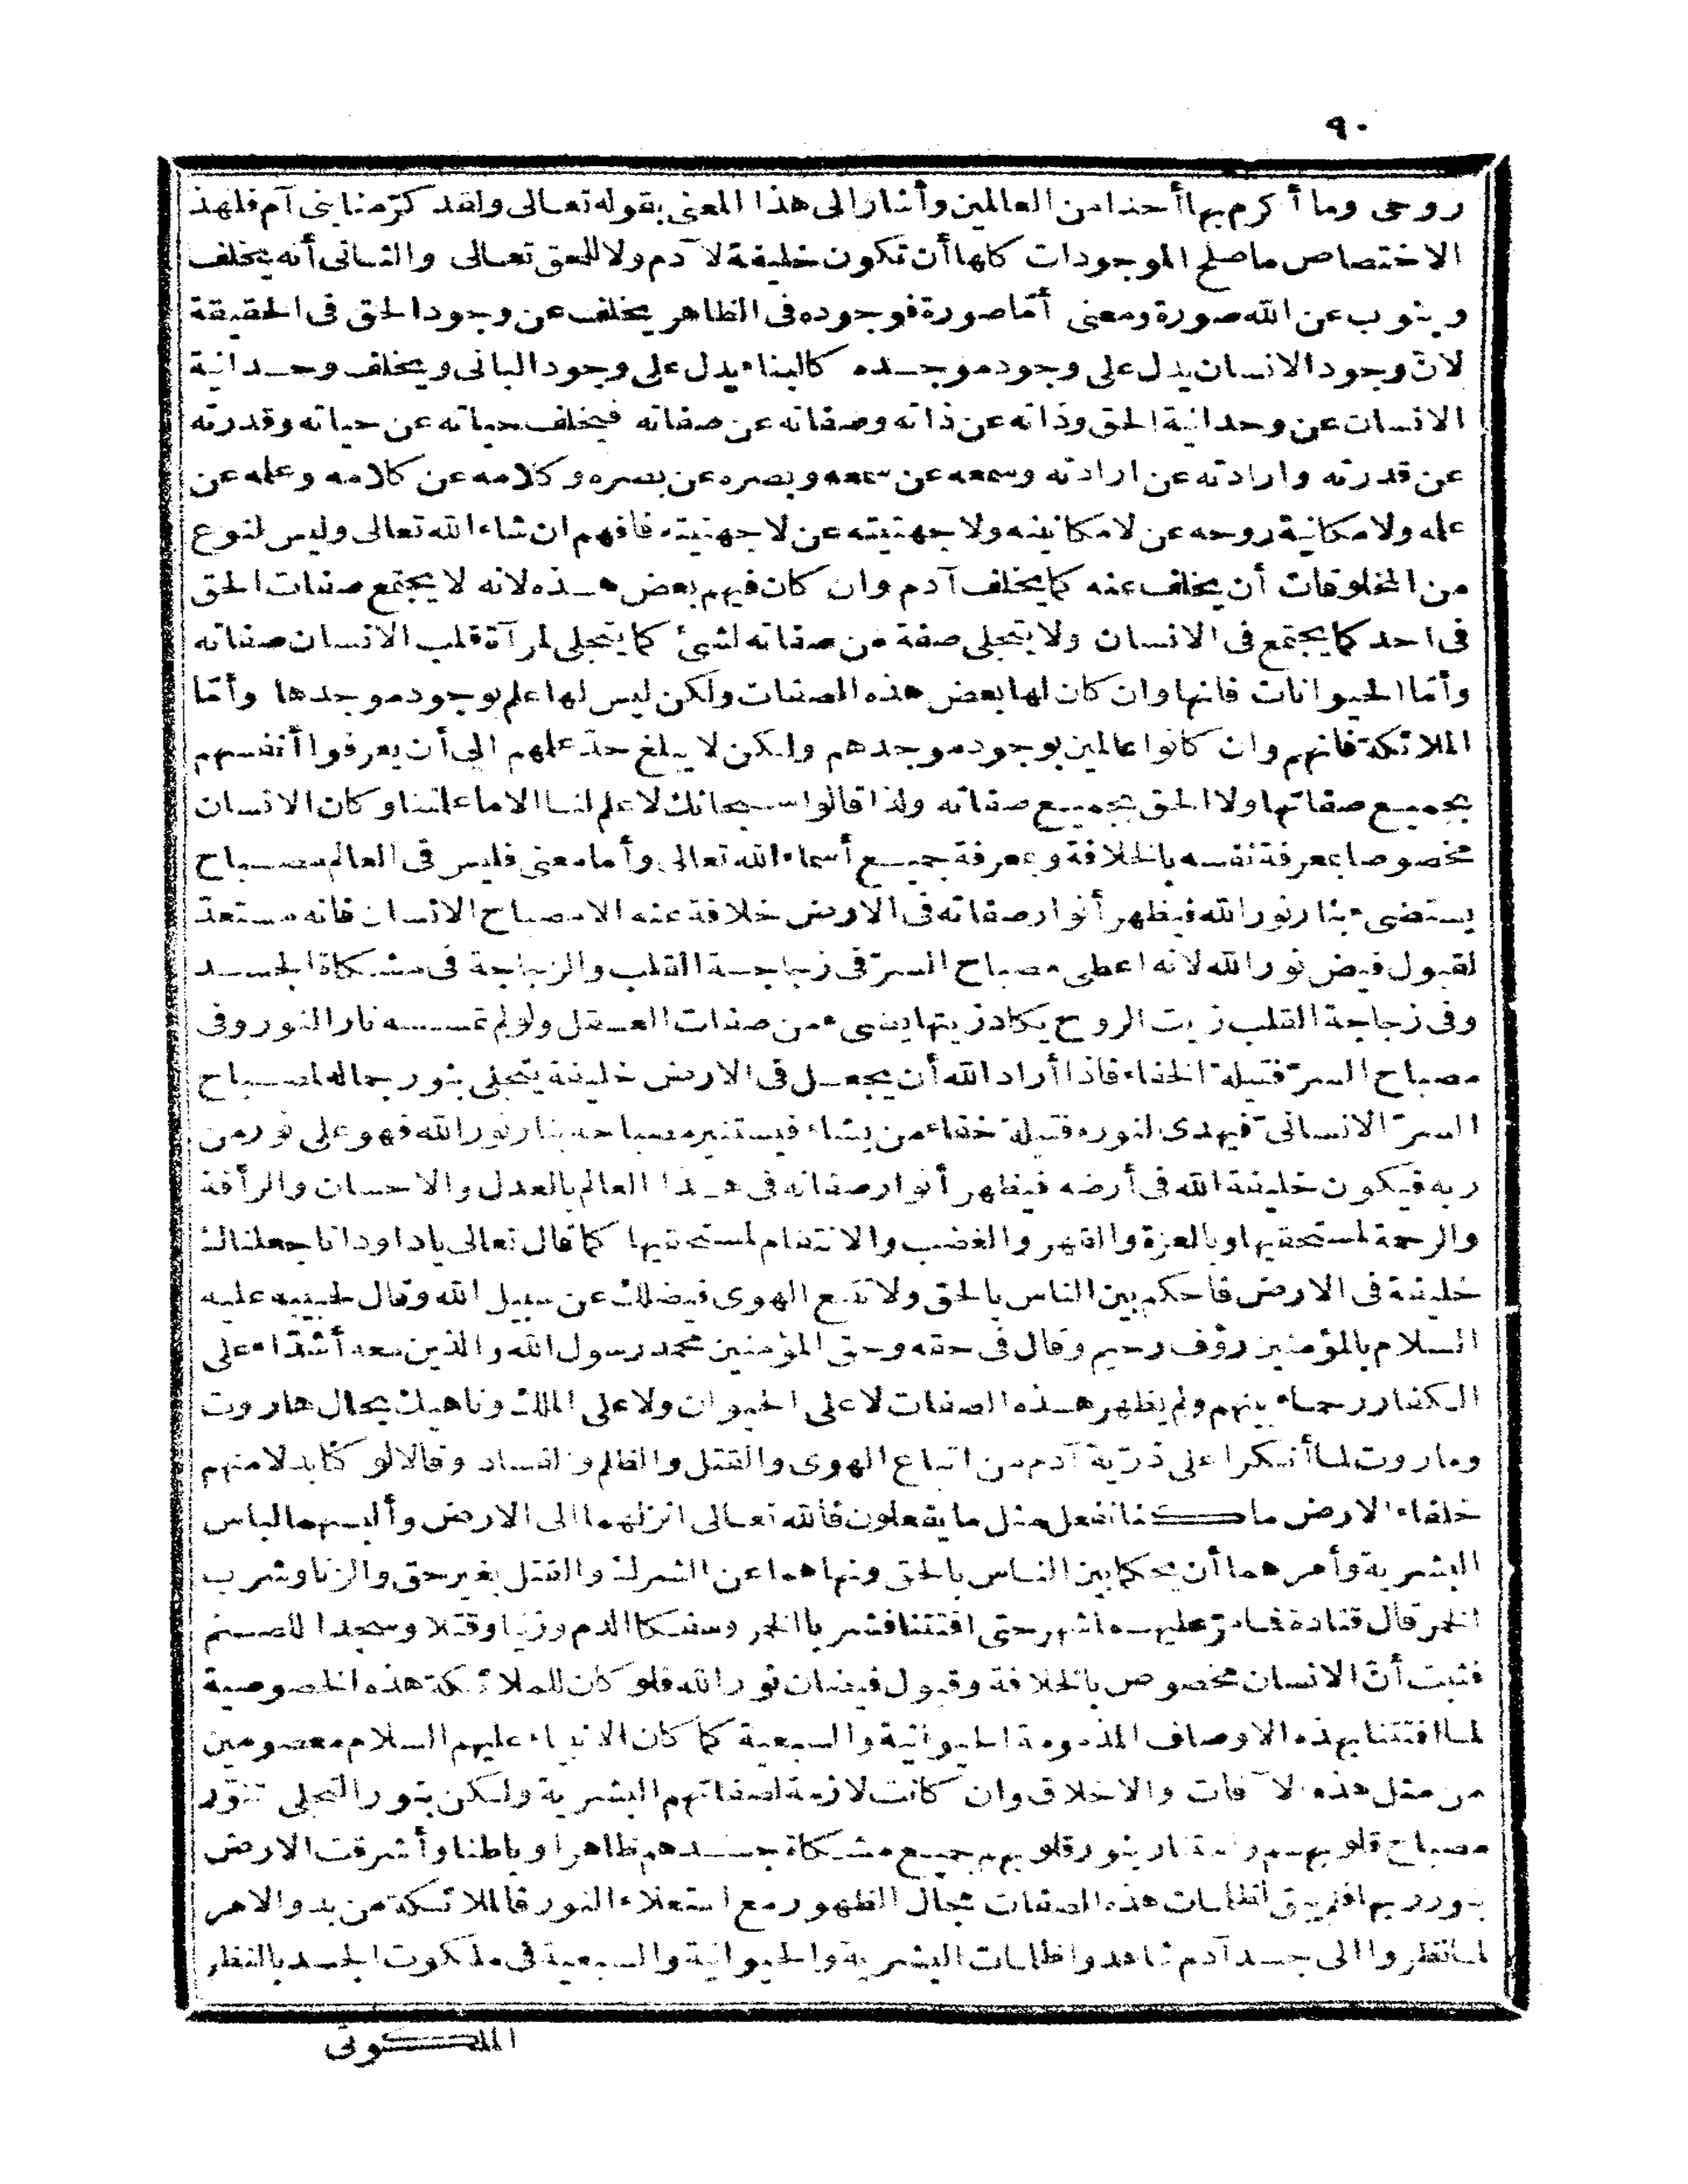 ٩٠
روحى وما أكرم بها أحدا من العالمين وأشار الى هذا المعنى بقوله تعالى ولقد كرّمنا بنى آدم فلهذا
الاختصاص ما صلح الموجودات كلها أن تكون خليفة لآدم ولا للحق تعالى والثانى أنه يخلف
وينوب عن الله صورة ومعنى أمّا صورة فوجوده فى الظاهر يخلف عن وجود الحق فى الحقيقة
لانّ وجود الانسان يدل على وجود موجده كالبناء يدل على وجود البانى ويخلف وحدانية
الانسان عن وحدانية الحق وذاته عن ذاته وصفاته عن صفاته فيخلف حياته عن حياته وقدرته
عن قدرته وارادته عن ارادته وسمعه عن سمعه وبصره عن بصره وكلامه عن كلامه وعلمه عن
علمه ولا مكانية روحه عن لا مكانيته ولا جهتيته عن لا جهتيته فافهم ان شاء الله تعالى وليس لنوع
من المخلوقات أن يخلف عنه كما يخلف آدم وان كان فيهم بعض هذه لانه لا يجتمع صفات الحق
فى احد كما يجتمع فى الانسان ولا يتجلى صفة من صفاته لشئ كما يتجلى لمرآة قلب الانسان صفاته
وأمّا الحيوانات فانها وان كان لها بعض هذه الصفات ولكن ليس لها علم بوجود موجدها وأمّا
الملائكة فانهم وان كانوا عالمين بوجود موجدهم ولكن لا يبلغ حدّ علمهم الى أن يعرفوا أنفسهم
بجميع صفاتها ولا الحق بجميع صفاته ولذا قالوا سبحانك لا علم لنا الا ما علمتنا وكان الانسان
مخصوصا بمعرفة نفسه بالخلافة وبمعرفة جميع أسماء الله تعالى وأما معنى فليس فى العالم مصباح
يستضىء بنار نور الله فيظهر أنوار صفاته فى الارض خلافة عنه الا مصباح الانسان فانه مستعدّ
لقبول فيض نور الله لانه اعطى مصباح السرّ فى زجاجة القلب والزجاجة فى مشكاة الجسد
وفى زجاجة القلب زيت الروح يكاد زيتها يضىء من صفات العقل ولو لم تمسسه نار النور وفى
مصباح السرّ فتيلة الخفاء فاذا أراد الله أن يجعل فى الارض خليفة يتجلى بنور جماله لمصباح
السرّ الانسانىّ فيهدى لنوره فتيلة خفاء من يشاء فيستنير مصباحه بنار نور الله فهو على نور من
ربه فيكون خليفة الله فى أرضه فيظهر أنوار صفاته فى هذا العالم بالعدل والاحسان والرأفة
والرحمة لمستحقيها وبالعزة والقهر والغضب والانتقام لمستحقيها كما قال تعالى يا داود انا جعلناك
خليفة فى الارض فاحكم بين الناس بالحق ولا تتبع الهوى فيضلك عن سبيل الله وقال لحبيبه عليه
السلام بالمؤمنين رؤف رحيم وقال فى حقه وحق المؤمنين محمد رسول الله والذين معه أشدّاء على
الكفار رحماء بينهم ولم يظهر هذه الصفات لا على الحيوان ولا على الملك وناهيك بحال هاروت
وماروت لما أنكرا على ذرّية آدم من اتباع الهوى والقتل والظلم والفساد وقالا لو كنّا بدلا منهم
خلفاء الارض ما كنا نفعل مثل ما يفعلون فالله تعالى انزلهما الى الارض وألبسهما لباس
البشرية وأمرهما أن يحكما بين الناس بالحق ونهاهما عن الشرك والقتل بغير حق والزنا وشرب
الخمر قال قتادة فما مرّ عليهما شهر حتى افتتنا فشربا الخمر وسفكا الدم وزنيا وقتلا وسجدا للصنم
فثبت أنّ الانسان مخصوص بالخلافة وقبول فيضان نور الله فلو كان للملائكة هذه الخصوصية
لما افتتنا بهذه الاوصاف المذمومة الحيوانية والسبعية كما كان الانبياء عليهم السلام معصومين
من مثل هذه الآفات والاخلاق وان كانت لازمة لصفاتهم البشرية ولكن بنور التجلى تنوّر
مصباح قلوبهم واستنار بنور قلوبهم جميع مشكاة جسدهم ظاهرا وباطنا وأشرقت الارض
بنور ربها فلم يبق لظلمات هذه الصفات مجال الظهور مع استعلاء النور فالملائكة من بدو الامر
لما نظروا الى جسد آدم شاهدوا ظلمات البشرية والحيوانية والسبعية فى ملكوت الجسد بالنظر
الملكوتى